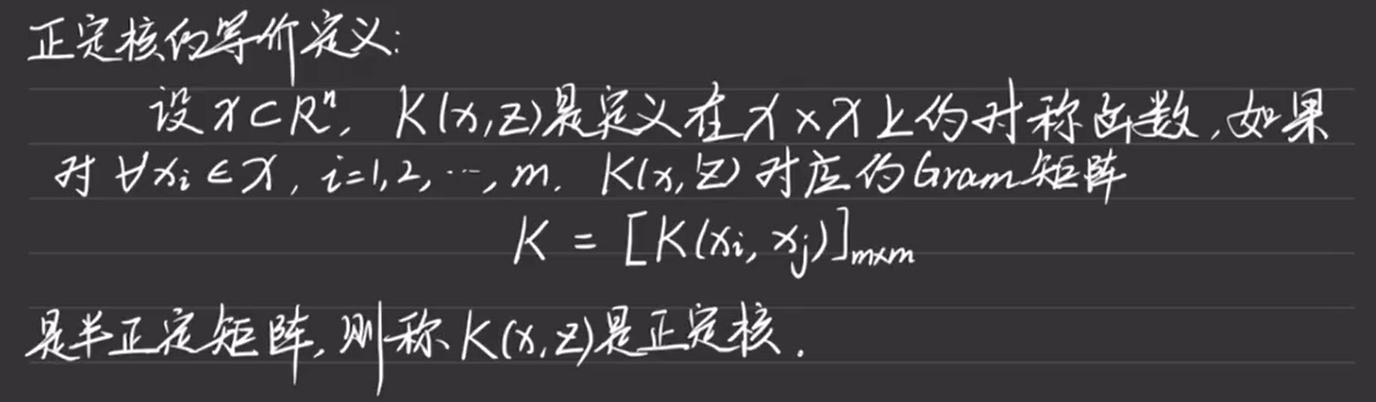 正定核的等价定义:
设 X⊂Rⁿ, K(x,z)是定义在 X×X 上的对称函数,如果
对 ∀xᵢ∈X, i=1,2,⋯,m. K(x,z) 对应的Gram矩阵
K = [K(xᵢ, xⱼ)]ₘₓₘ
是半正定矩阵,则称 K(x,z)是正定核.